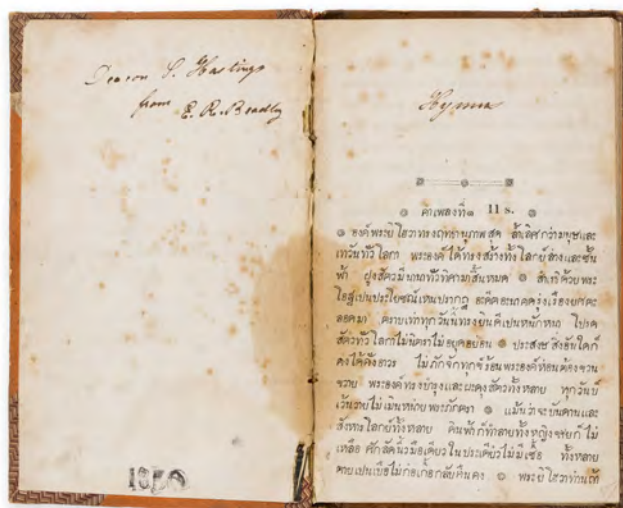 Deacon S. Hastings
from E. R. Bradley
1850
Hymns
๏ คำเพลงที่๑ 11 s. ๏
๏ องค์พระยิโฮวาทรงฤทธานุภาพสุด ล้ำเลิศกว่ามนุษและ
เทวันทั่วโลกา พระองค์ได้ทรงสร้างทั้งโลกย์ล่างและชั้น
ฟ้า ฝูงสัตว์มีนานาทั่วทิศาสิ้นหมด ๏ ด้วยพระ
เปนประโยชน์เหนปรากฏ
ทุกวันนี้ทรงยินดีเปนหนักหนา โปรด
สัตว์ทั่วโลกาไม่นิทราไม่หยุดหย่อน ๏ ประสงค์สิ่งอันใดก็
คงได้ดั่งอาวร ร้อนพระองค์ห่อนต้องขวน
ขวาย พระองค์ทรงบำรุงและผะดุงสัตว์ทั้งหลาย ทุกวันบ่
เว้นวายไม่เมินหน่ายพระภักตรา ๏ แม้นว่าจะบันดานและ
สังหารโลกย์ทั้งหลาย ดินฟ้าก็ทำลายทั้งหญิงชายก็ไม่
เหลือ ศักลัดนิ้วมือเดียวในประเดี๋ยวไม่มีเชื้อ ทั้งหลาย
ตายเปนเบือไม่ก่อเกื้อกลับคืนคง ๏ พระยิโฮวาท่านถ้า